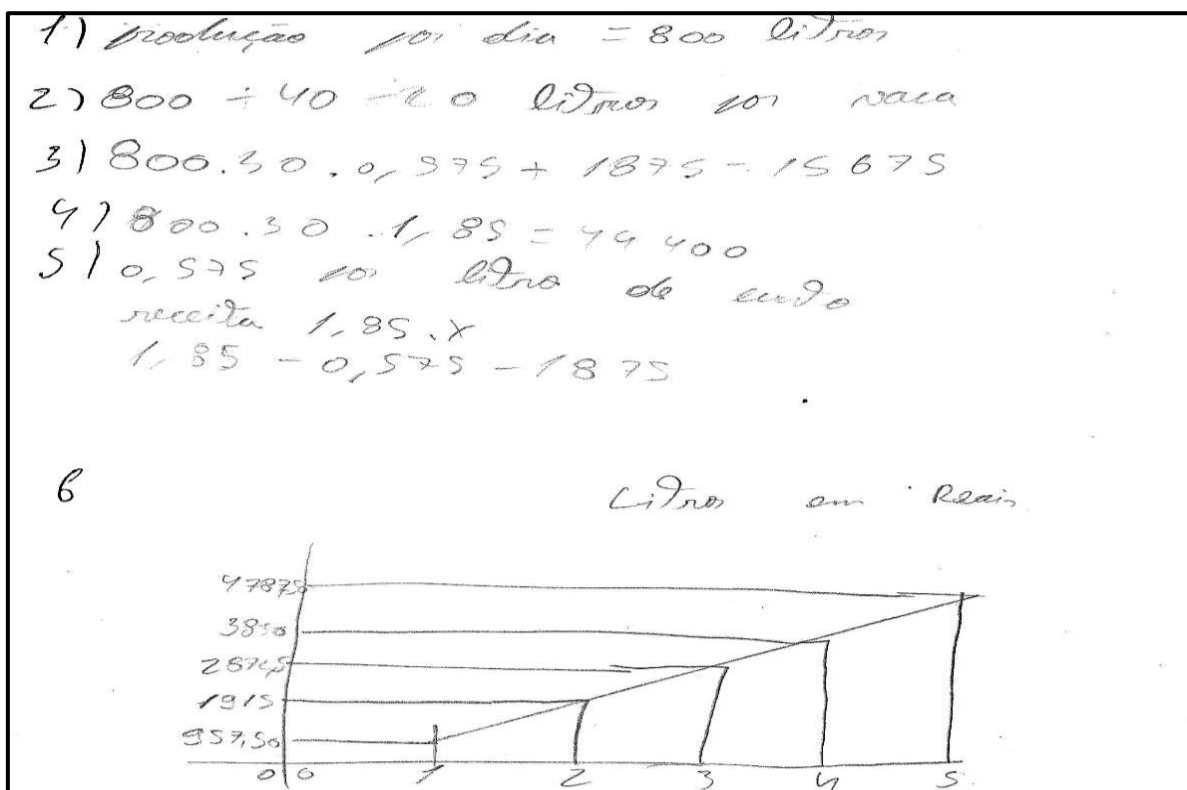 1) produção por dia = 800 litros
2) 800 ÷ 40 = 20 litros por vaca
3) 800.30.0,575 + 1875 = 15675
4) 800.30.1,85 = 44 400
5) 0,575 por litro de custo
receita 1,85.x
1,85 - 0,575 - 1875
6
Litros em Reais
4787,50
3830
2872,5
1915
957,50
0 0 1 2 3 4 5